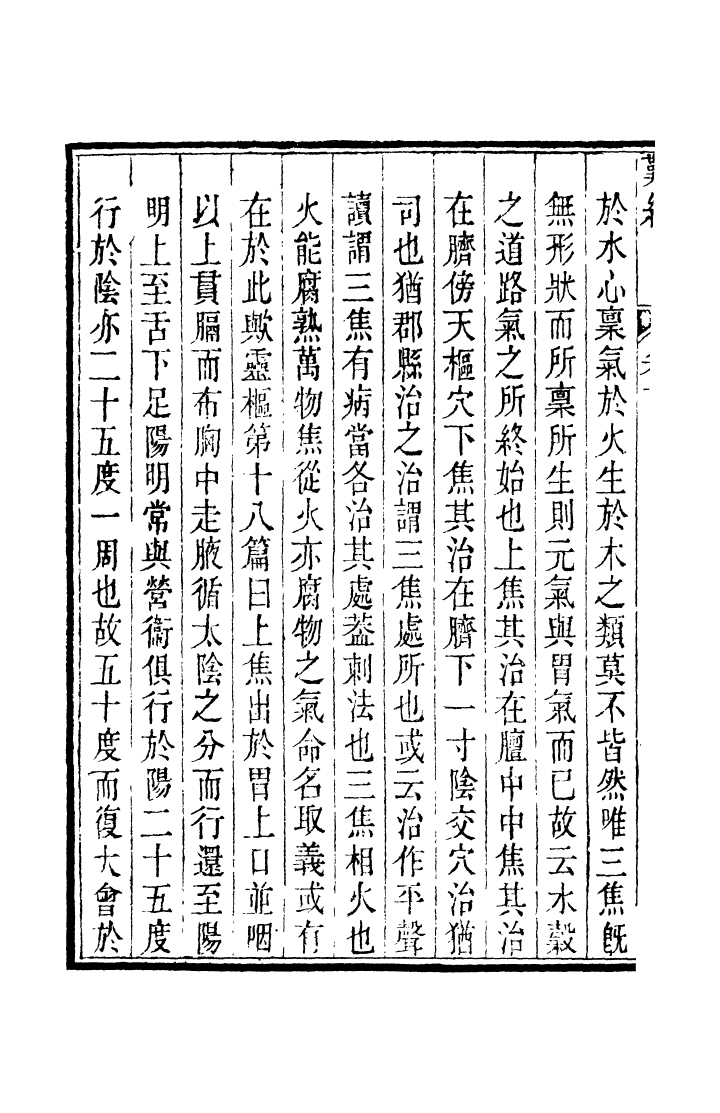 於水心稟氣於火生於木之類莫不皆然唯三焦旣
無形狀而所稟所生則元氣與胃氣而已故云水穀
之道路氣之所終始也上焦其治在膻中中焦其治
在臍傍天樞穴下焦其治在臍下一寸陰交穴治猶
司也猶郡縣治之治謂三焦處所也或云治作平聲
讀謂三焦有病當各治其處蓋刺法也三焦相火也
火能腐熟萬物焦從火亦腐物之氣命名取義或有
在於此歟靈樞第十八篇曰上焦出於胃上口並咽
以上貫膈而布胸中走腋循太陰之分而行還至陽
明上至舌下足陽明常與營衞俱行於陽二十五度
行於陰亦二十五度一周也故五十度而復大會於